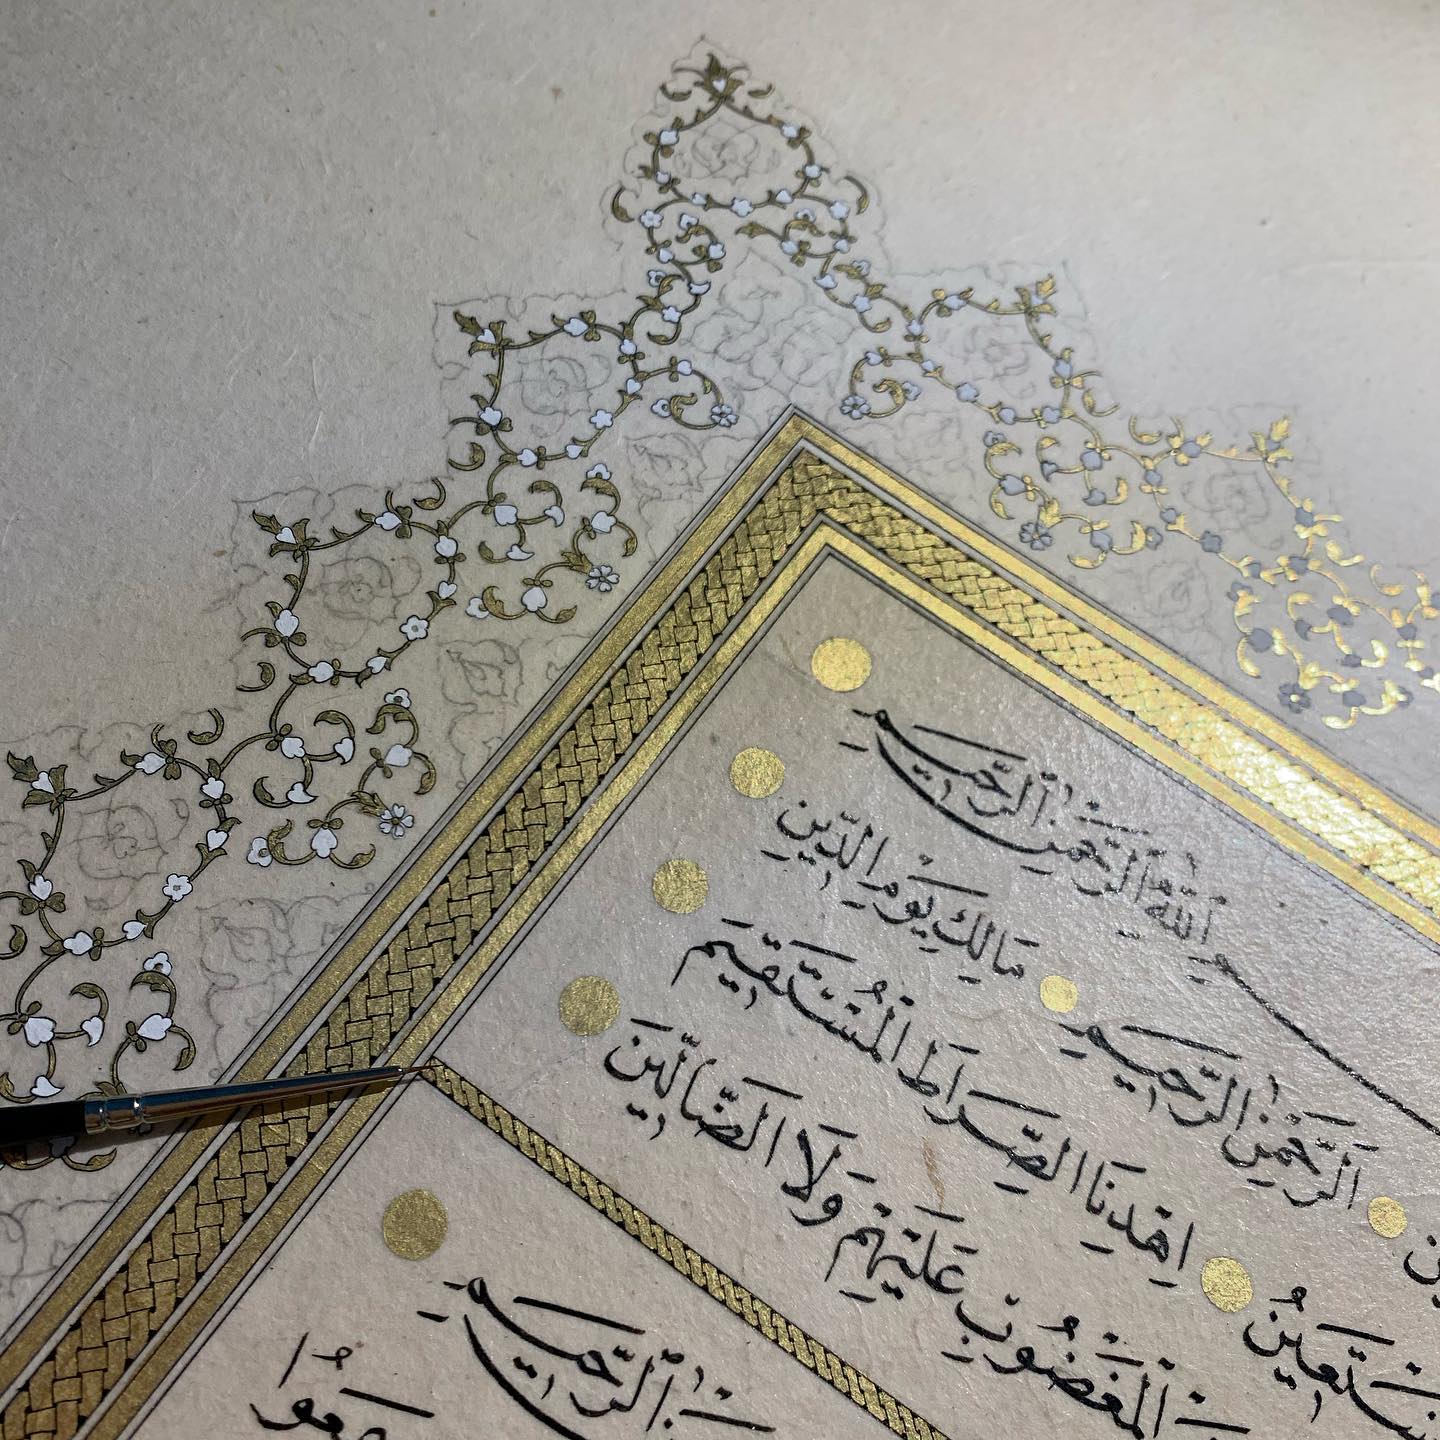 ٱللّٰهِ ٱلرَّحْمٰنِ ٱلرَّحِيمِ
ٱلرَّحْمٰنِ ٱلرَّحِيمِ مَالِكِ يَوْمِ الدِّينِ
نَسْتَعِينُ اِهْدِنَا الصِّرَاطَ الْمُسْتَقِيمَ
الْمَغْضُوبِ عَلَيْهِمْ وَلَا الضَّالِّينَ
ٱلرَّحِيمِ